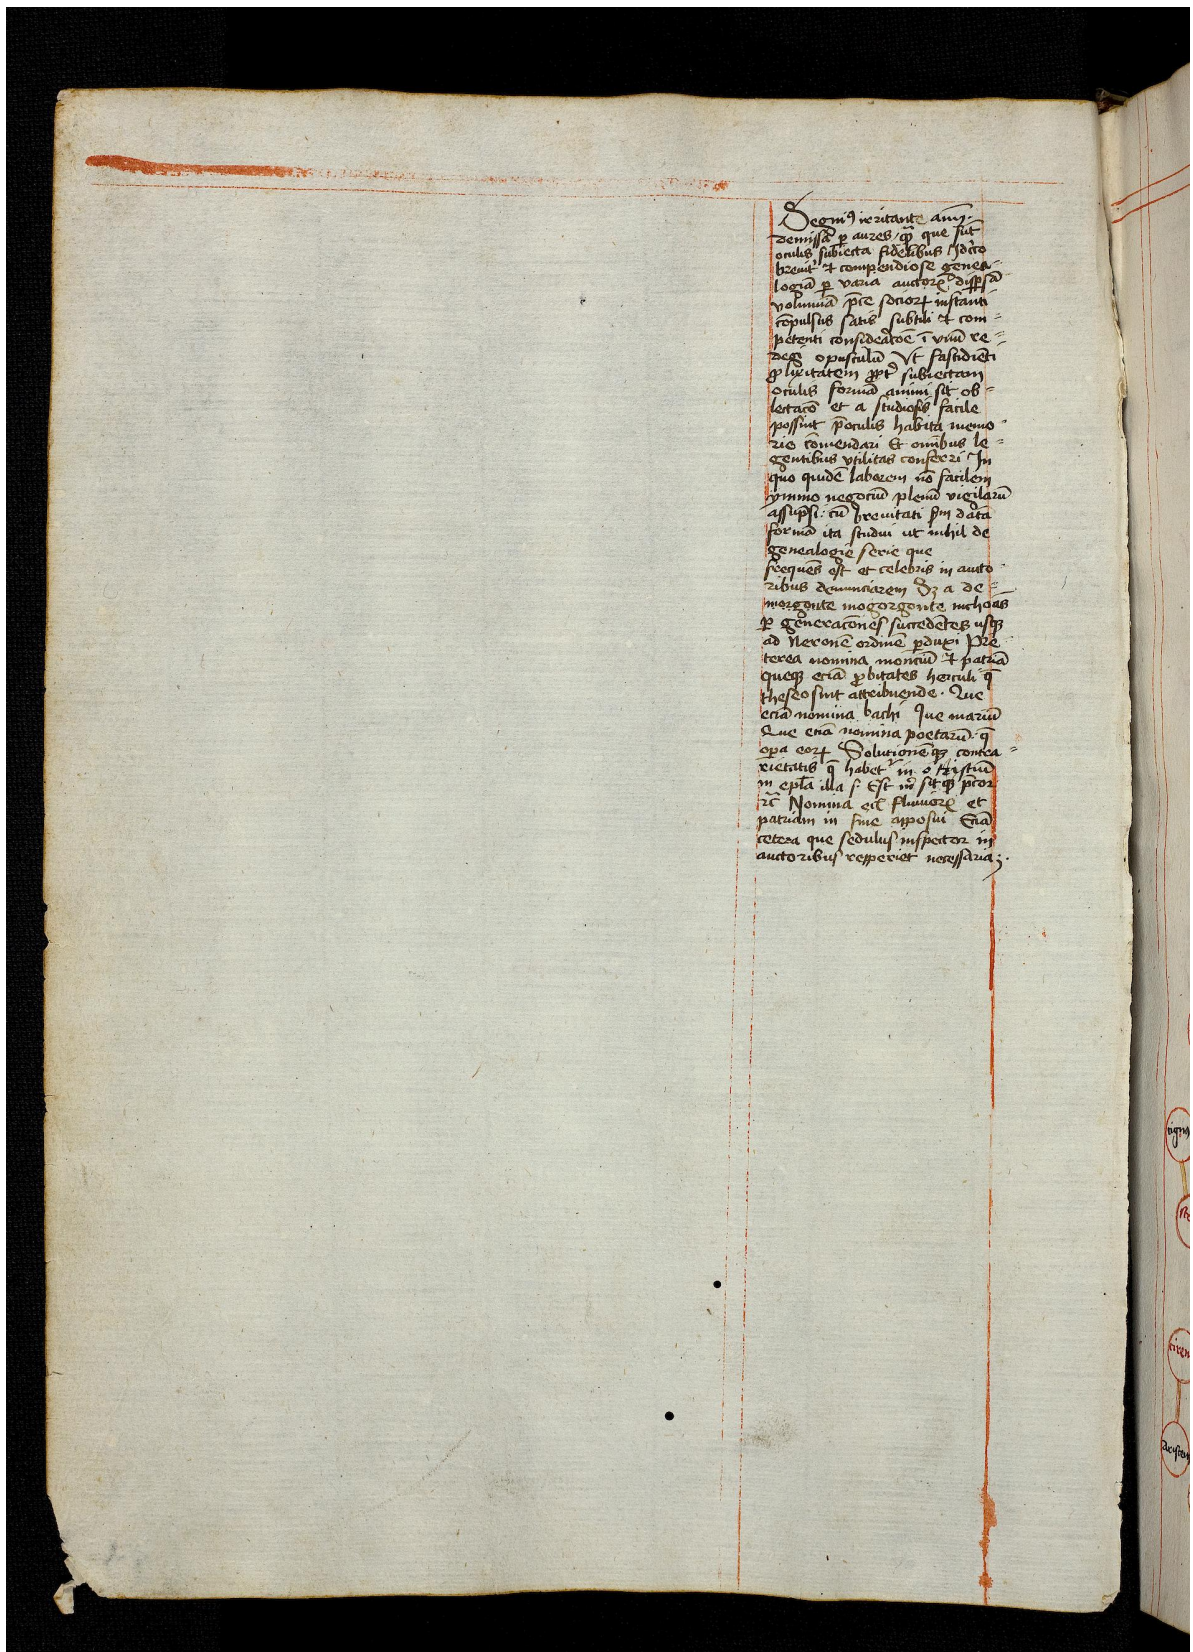 Segniꝰ irritante anīꝫ
demissā ꝑ aures / qꝫ̄ que sūt
oculis subiecta fidelibus Jdc̄co
breuit᷑ et compendiose genea-
logiā ꝑ varia auctoꝝ dispsā
volumīa p̄ce socioꝝ instanti
cōpulsus satis subtili et com=
petenti consideac̄oē ī vnū re=
degi opusculū Vt fastidiēti
ꝓlixitatem ꝓpt᷑ subiectam
oculis formā animi sit ob=
lectac̄o et a studiosis facile
possint p̄oculis habita memo-
rie cōmendari Et omībus le=
gentibus vtilitas conferri Jn
quo quidē laborem nō facilem
ymmo negociū plenū vigiliarū
assūpsi: cū breuitati ẜm datā
formā ita studui ut nihil de
genealogie serie que
frequēs est et celebris in aucto-
ribus denunciarem Sꝫ a de=
morgonte mogorgonte inchoās
ꝑ generac̄ones succedētes usqꝫ
ad Neronē ordinē ꝑduxi Pre-
terea nomina monciū et patriā
queqꝫ eciā ꝓbitates herculi q̄
theseo sint attribuende. Que
eciā nomina bachi Que mariū
Que eciā nomina poetarū. q̄
oꝑa eoꝝ Solutionēqꝫ contra=
rietatis q̄ habet᷑ in o tristiū
in epl̄a illa s. Est
Nomina flumoꝝ et
patriam in fine apposui Eciā
cetera que sedulus inspector in
auctoribus repperiet necessaria;.
tignꝰ